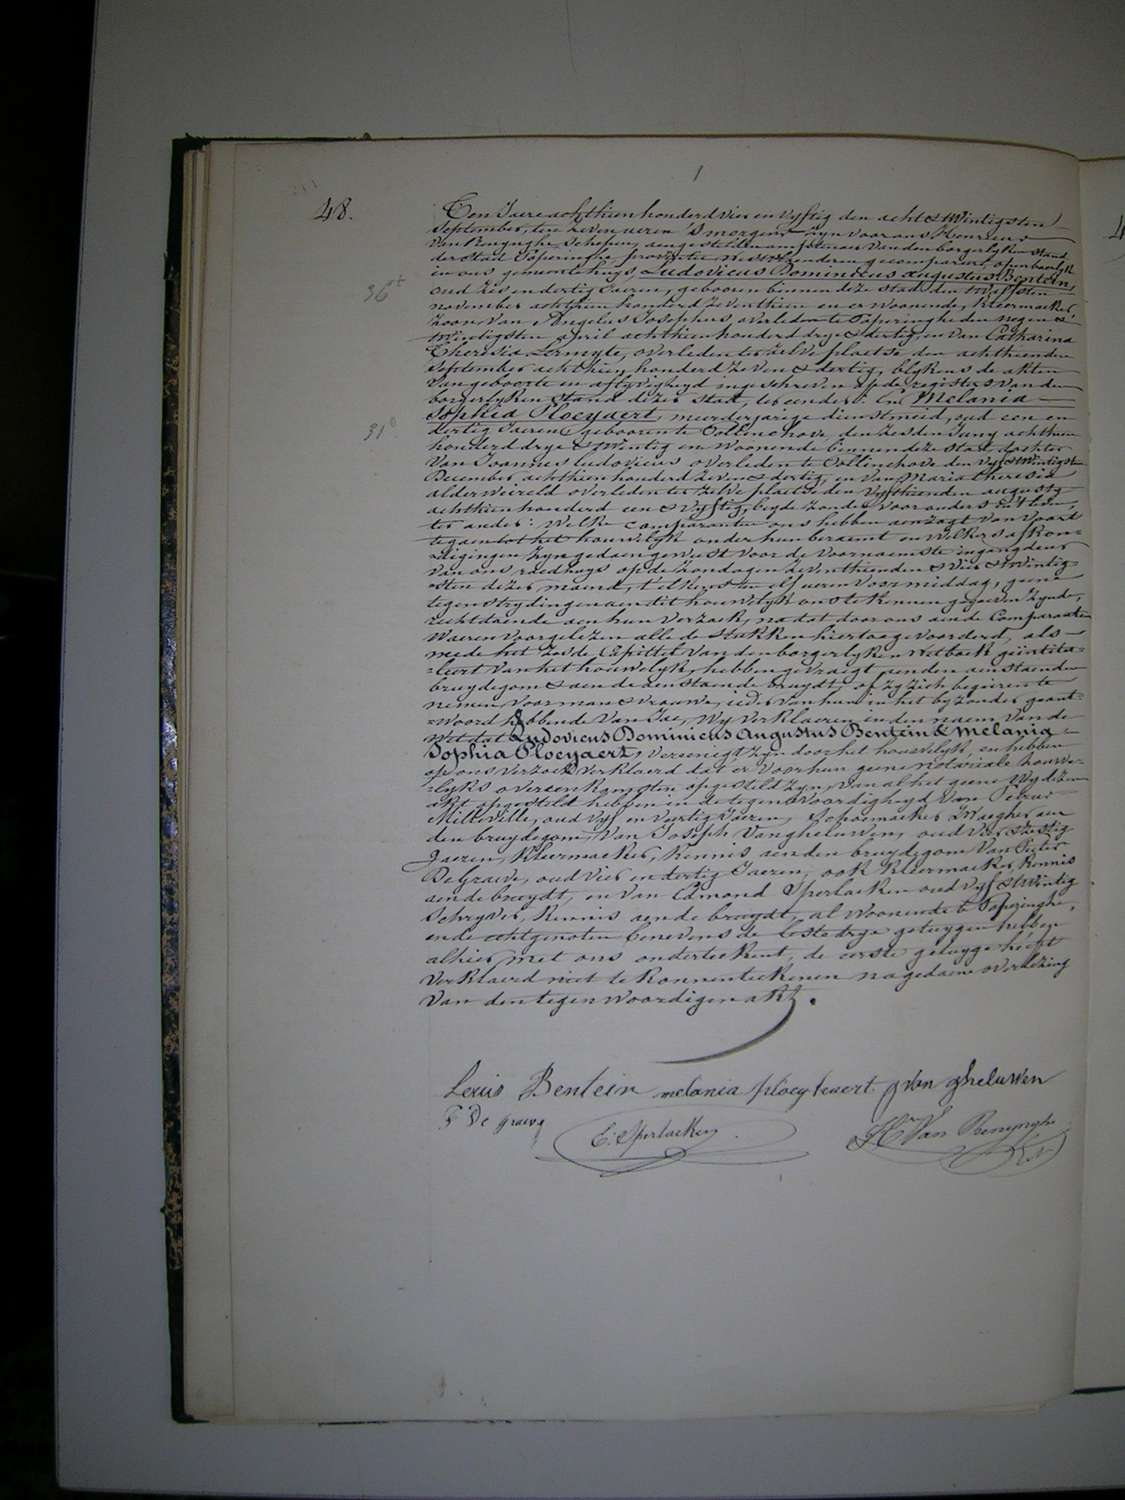 1
48.
Ten Jaere achthien honderd vier en vyftig den acht & twintigsten
September, ten zeven ueren 's morgens zyn voor ons Henricus
Van Renynghe Schepen, aengestelden amptenaer van den borgerlyken stand
der stad Poperinghe, provintie Westvlaenderen gecompareerd, openbaerlyk
in ons gemeentehuys, Ludovicus Dominicus Augustus Bentein,
36
oud zes en dertig Jaeren, gebooren binnen deze stad den twelfsten
november achthien honderd zeventhien en er woonende, kleermaeker,
zoon van Angelus Josephus, overleden te Poperinghe den negen &
twintigsten april achthien honderd dry & dertig, en van Catharina
Theresia Lermyte, overleden ter zelve plaetse den achthienden
September achthien honderd zeven & dertig, blykens de akten
van geboorte en aflyvigheyd ingeschreven op de registers van den
borgerlyken stand dezer stad, ter eender: En Melania
Sophia Ploeyaert, meerderjarige dienstmeid, oud een en
31
dertig Jaeren, gebooren te Pollinchove den zesden Juny achthien
honderd drye & twintig en woonende binnen deze stad, dochter
van Joannes Ludovicus overleden te Pollinchove den vyf & twintigsten
December achthien honderd zeven & dertig, en van Maria Theresia
alderweireld overleden ter zelve plaetse den vyfthienden augusty
achthien honderd een & vyftig, beyde zonder voorouders in 't leven,
ter ander: Welke comparanten ons hebben aenzogt van voort
te gaen tot het houwelyk onder hun beraemt en welkers afkon-
-digingen zyn gedaen geweest voor de voornaemste ingangdeur
van ons raedhuys op de zondagen zeventhienden & vier & twintig-
-sten dezer maend, telkens ten elf ueren voormiddag, geene
tegenstrydingen aen dit houwelyk ons te kennen gegeven zynde,
rechtdoende aen hun verzoek, na dat door ons aen de Comparanten
waeren voorgelezen alle de stukken hiertoe gevoorderd, als
mede het zesde Capittel van den borgerlyken Wetboek geintitu-
-leert van het houwelyk, hebben gevraegt aen den aenstaenden
bruydegom & aen de aenstaende bruydt, of zy zich begeiren te
nemen voor man & vrouwe, ieder van hun in het byzonder geant-
-woord hebbende van Jae, Wy verklaeren in den naem van de
Wet dat Ludovicus Dominicus Augustus Bentein & Melania
Sophia Ploeyaert, vereenigt zyn door het houwelyk, en hebben
op ons verzoek verklaerd dat er voor hun geene notariale houwe-
-lyks overeenkomsten opgesteld zyn, van al het geene wy dezen
akt opgesteld hebben in de tegenwoordigheyd van Petrus
Milleville, oud vyf en veertig Jaeren, Schoenmaeker Zwaegher aen
den bruydegom, van Joseph Vangheluwen, oud vier & sestig
Jaeren, Kleermaeker, Kennis aen den bruydegom van Pieter
DeGraeve, oud vier en dertig Jaeren, ook Kleermaeker, Kennis
aen de bruydt, en van Edmond Sperlaeken oud vyf & twintig
Schryver, Kennis aen de bruydt, al woonende te Poperinghe,
en de echtgenoten benevens de leste drye getuygen hebben
alhier met ons onderteekent, de eerste getuyge heeft
verklaerd niet te konnen teekenen na gedaene overlezing
van den tegenwoordigen akt.
Lewis Bentein melania ploeyhaert J Van gheluwen
P De graeve
E. Sperlaeken HC Van Renynghe